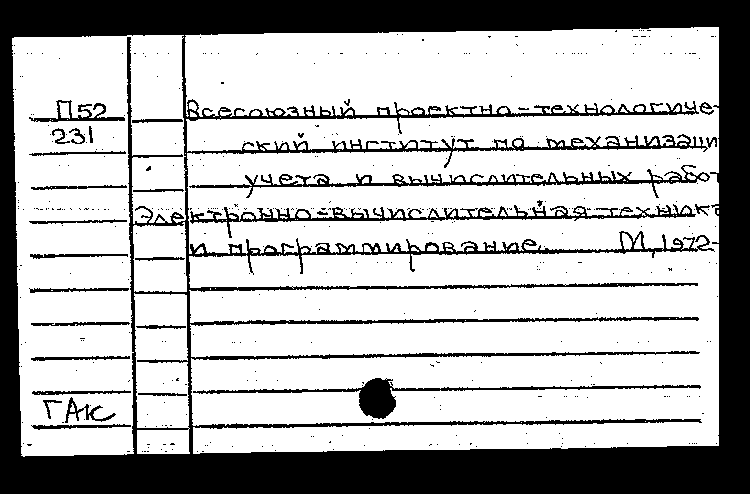 П52 Всесоюзный проектно-технологиче-
231 ский институт по механизаци
учета и вычислительных работ
Электронно-вычислительная техника
и программирование. М, 1972-
ГАК